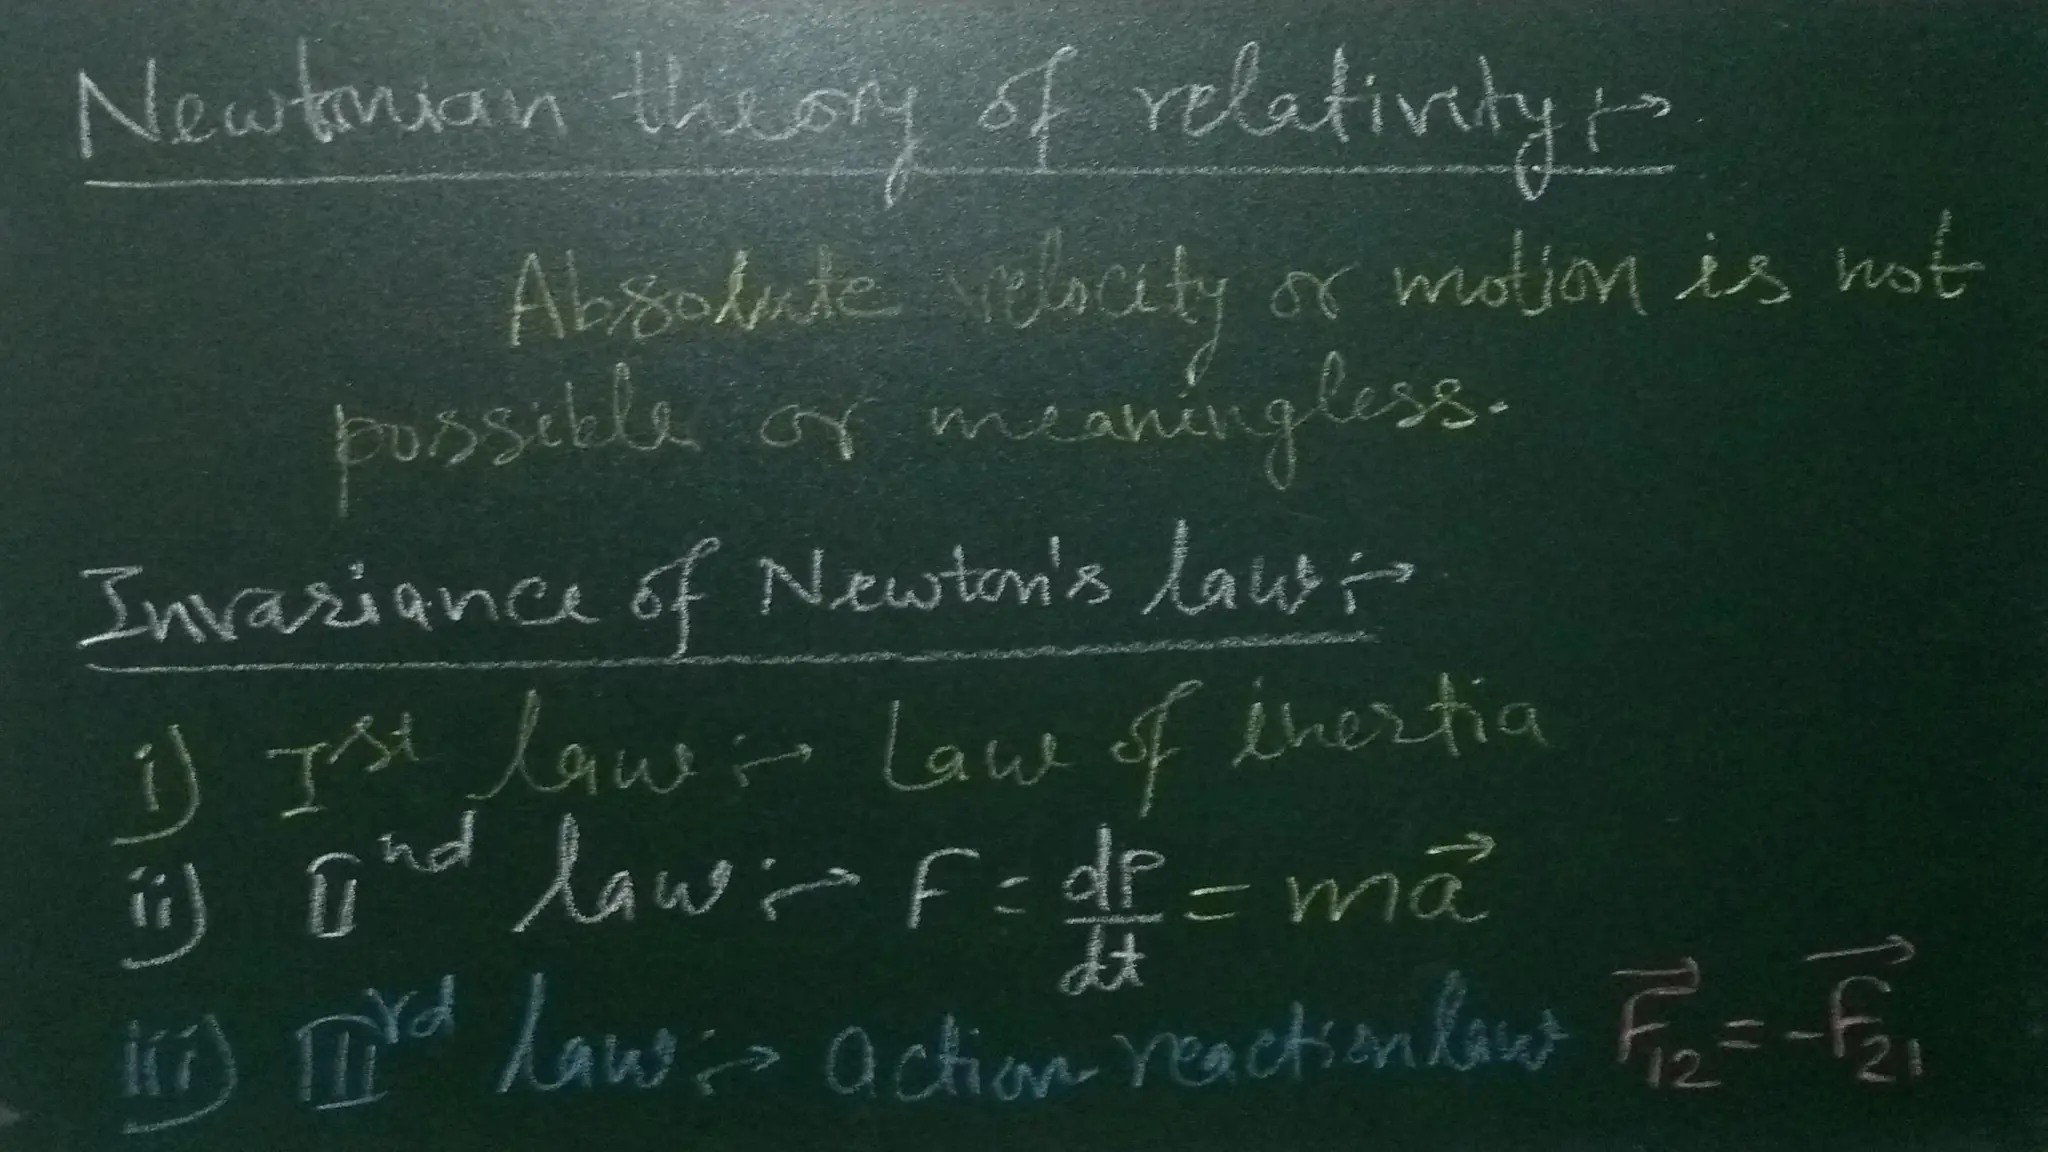 Newtonian theory of relativity :→
Absolute velocity or motion is not
possible or meaningless.
Invariance of Newton's law :→
i) Ist law :→ Law of inertia
ii) IInd law :→ F = dP/dt = ma⃗
iii) IIIrd law :→ action reaction law F⃗12 = -F⃗21